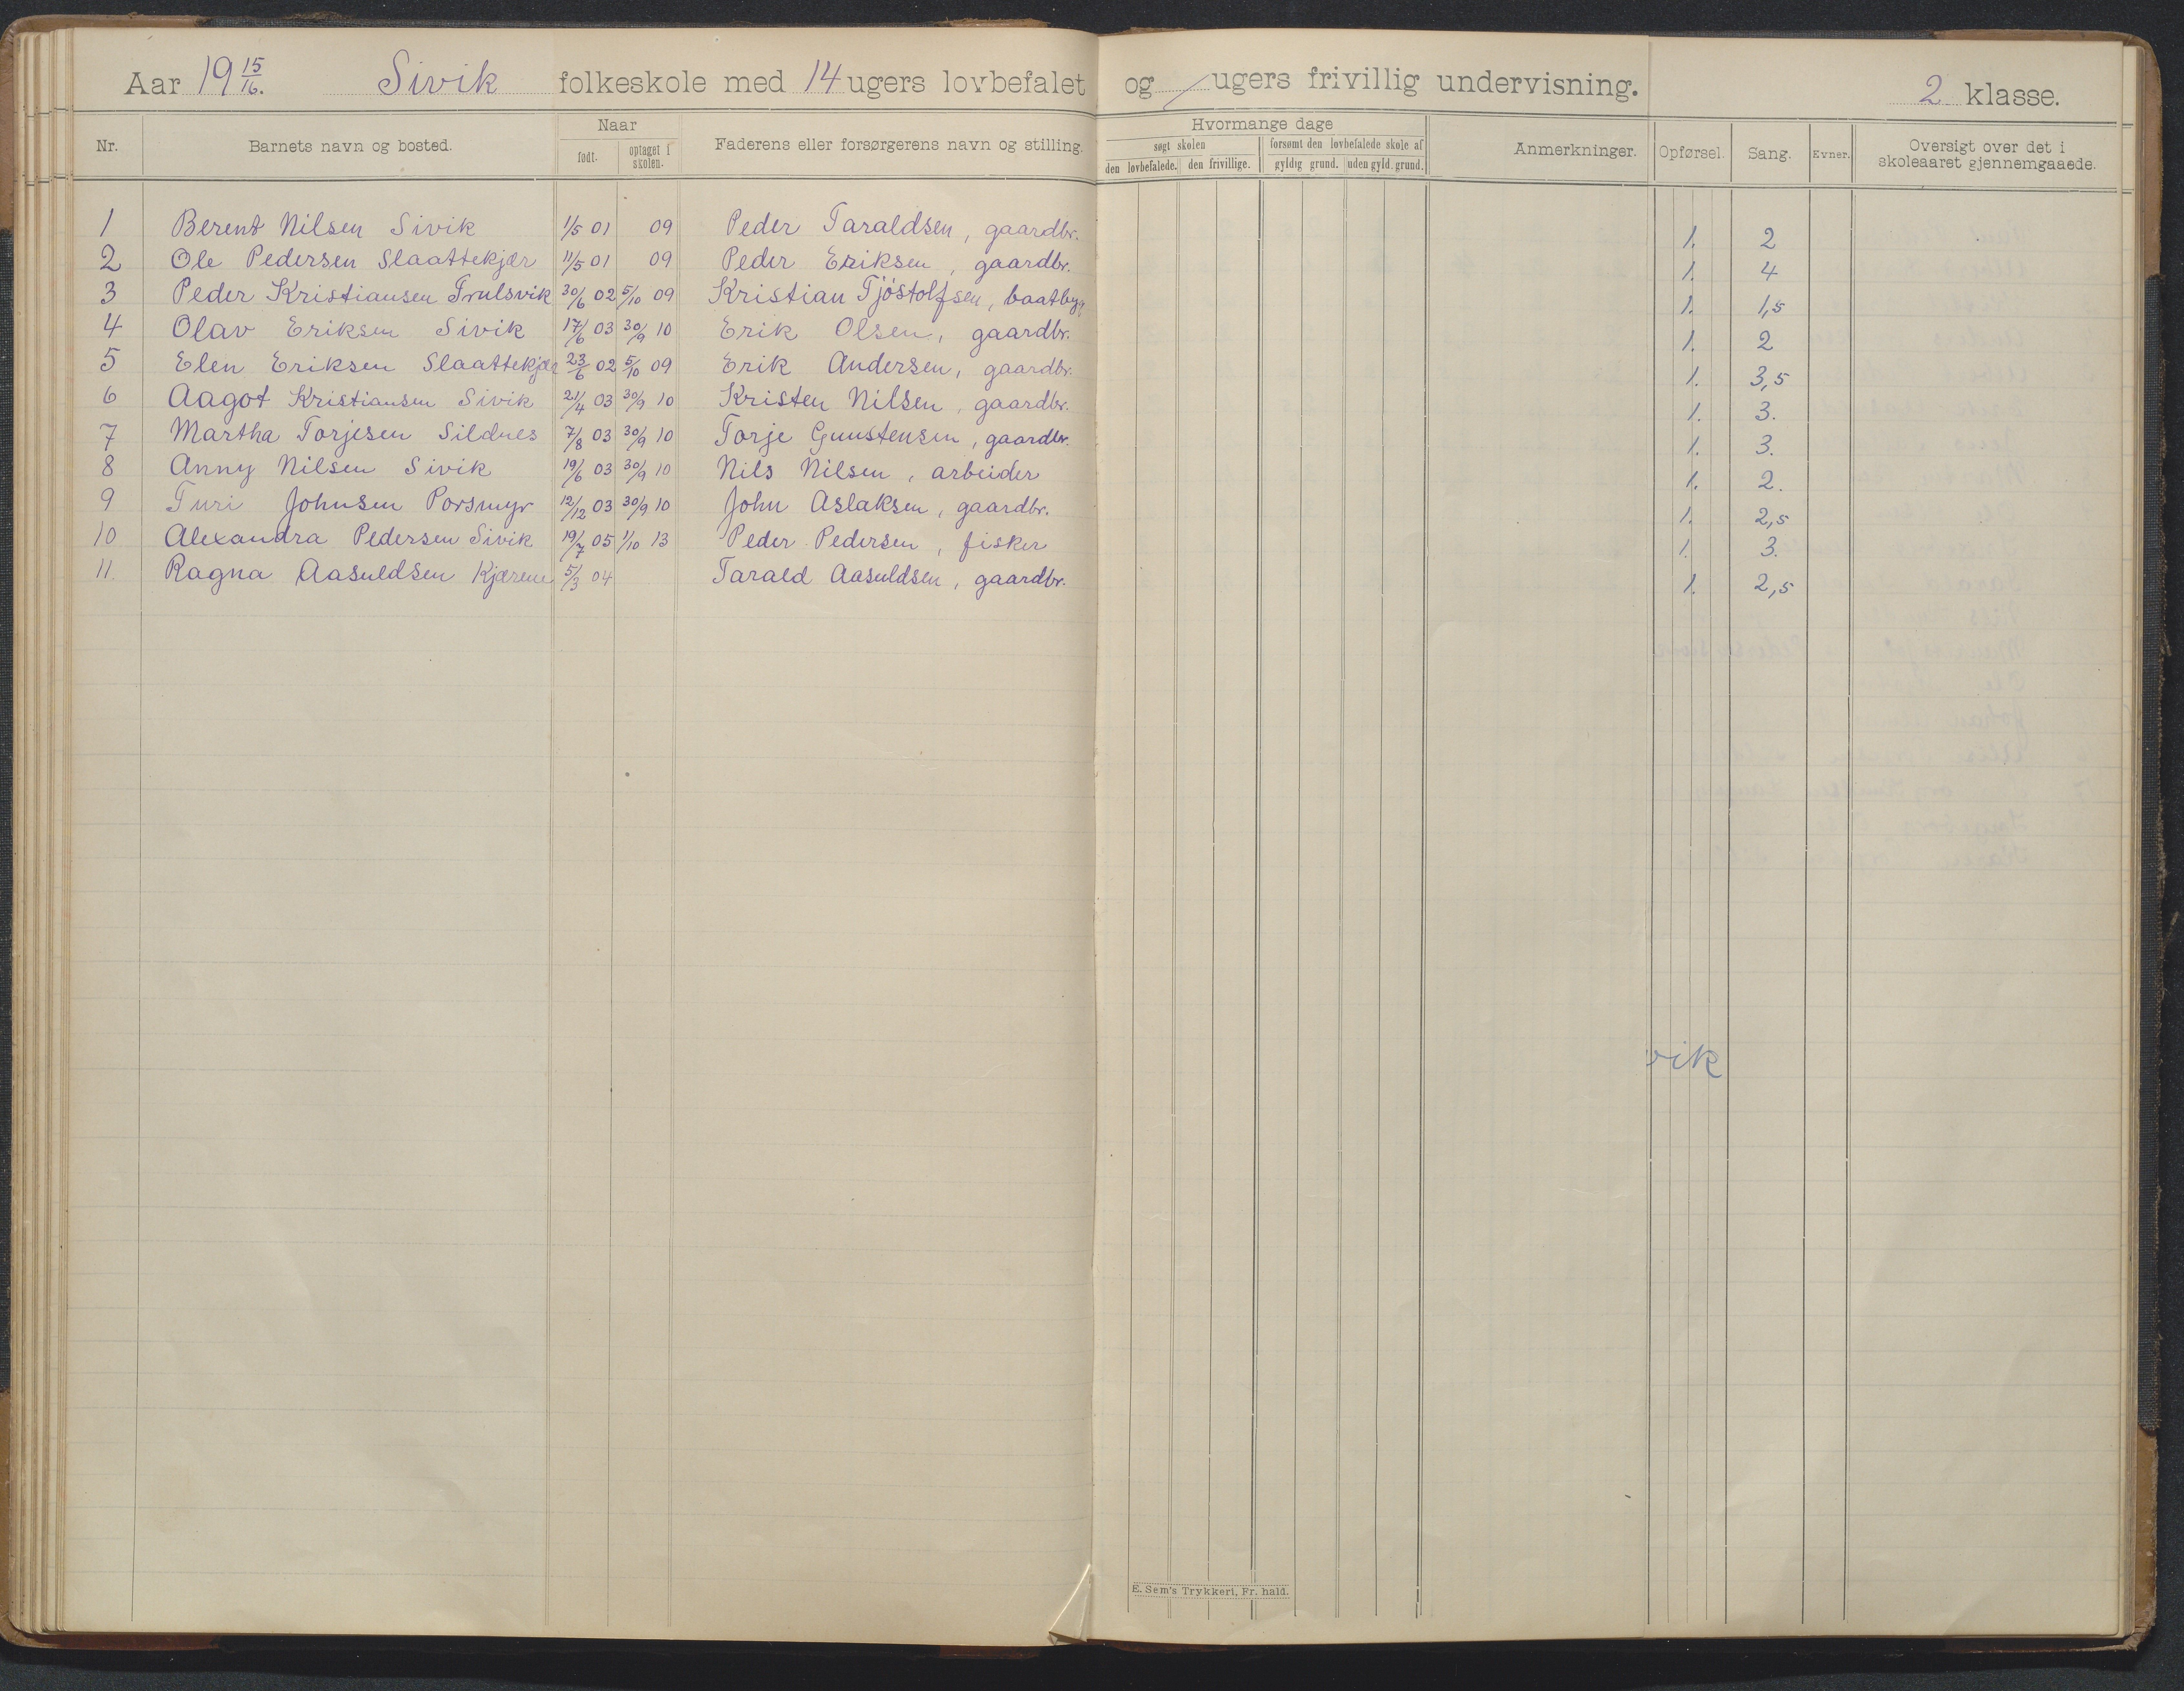 Aar 19 15/16. Sivik folkeskole med 14 ugers lovbefalet og / ugers frivillig undervisning. 2 klasse.
Nr. Barnets navn og bosted. Naar født. optaget i skolen. Faderens eller forsørgerens navn og stilling. Hvormange dage søgt skolen den lovbefalede. den frivillige. forsømt den lovbefalede skole af gyldig grund. uden gyld. grund. Anmerkninger. Opførsel. Sang. Evner. Oversigt over det i skoleaaret gjennemgaaede.
1 Berent Nilsen Sivik 1/5 01 09 Peder Taraldsen, gaardbr. 1. 2
2 Ole Pedersen Slaattekjær 11/5 01 09 Peder Eriksen, gaardbr. 1. 4
3 Peder Kristiansen Trulsvik 30/6 02 5/10 09 Kristian Tjöstolfsen, baatbyg 1. 1,5
4 Olav Eriksen Sivik 17/6 03 30/9 10 Erik Olsen, gaardbr. 1. 2
5 Elen Eriksen Slaattekjær 23/6 02 5/10 09 Erik Andersen, gaardbr. 1. 3,5
6 Aagot Kristiansen Sivik 21/4 03 30/9 10 Kristen Nilsen, gaardbr. 1. 3.
7 Martha Torjesen Sildnes 7/8 03 30/9 10 Torje Gunstensen, gaardbr. 1. 3.
8 Anny Nilsen Sivik 19/6 03 30/9 10 Nils Nilsen, arbeider 1. 2.
9 Turi Johnsen Porsmyr 12/12 03 30/9 10 John Aslaksen, gaardbr. 1. 2,5
10 Alexandra Pedersen Sivik 19/7 05 1/10 13 Peder Pedersen, fisker 1. 3.
11. Ragna Aasuldsen Kjærene 5/3 04 Tarald Aasuldsen, gaardbr. 1. 2,5
vik
E. Sem's Trykkeri, Fr. hald.